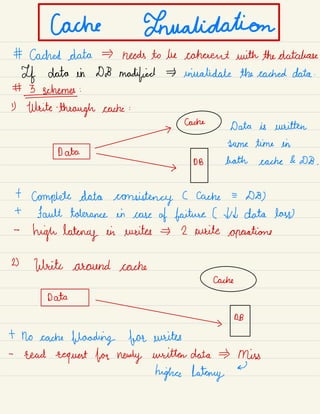 Cache Invalidation
# Cached data ⇒ needs to be coherent with the database
If data in DB modified ⇒ invalidate the cached data.
# 3 schemes:
1) Write-through cache:
Cache
Data is written
same time in
both cache & DB.
Data
DB
+ Complete data consistency (Cache ≡ DB)
+ fault tolerance in case of failure (↓↓ data loss)
- high latency in writes ⇒ 2 write operations
2) Write around cache
Cache
Data
DB
+ no cache flooding for writes
- read request for newly written data ⇒ Miss
higher latency ↵